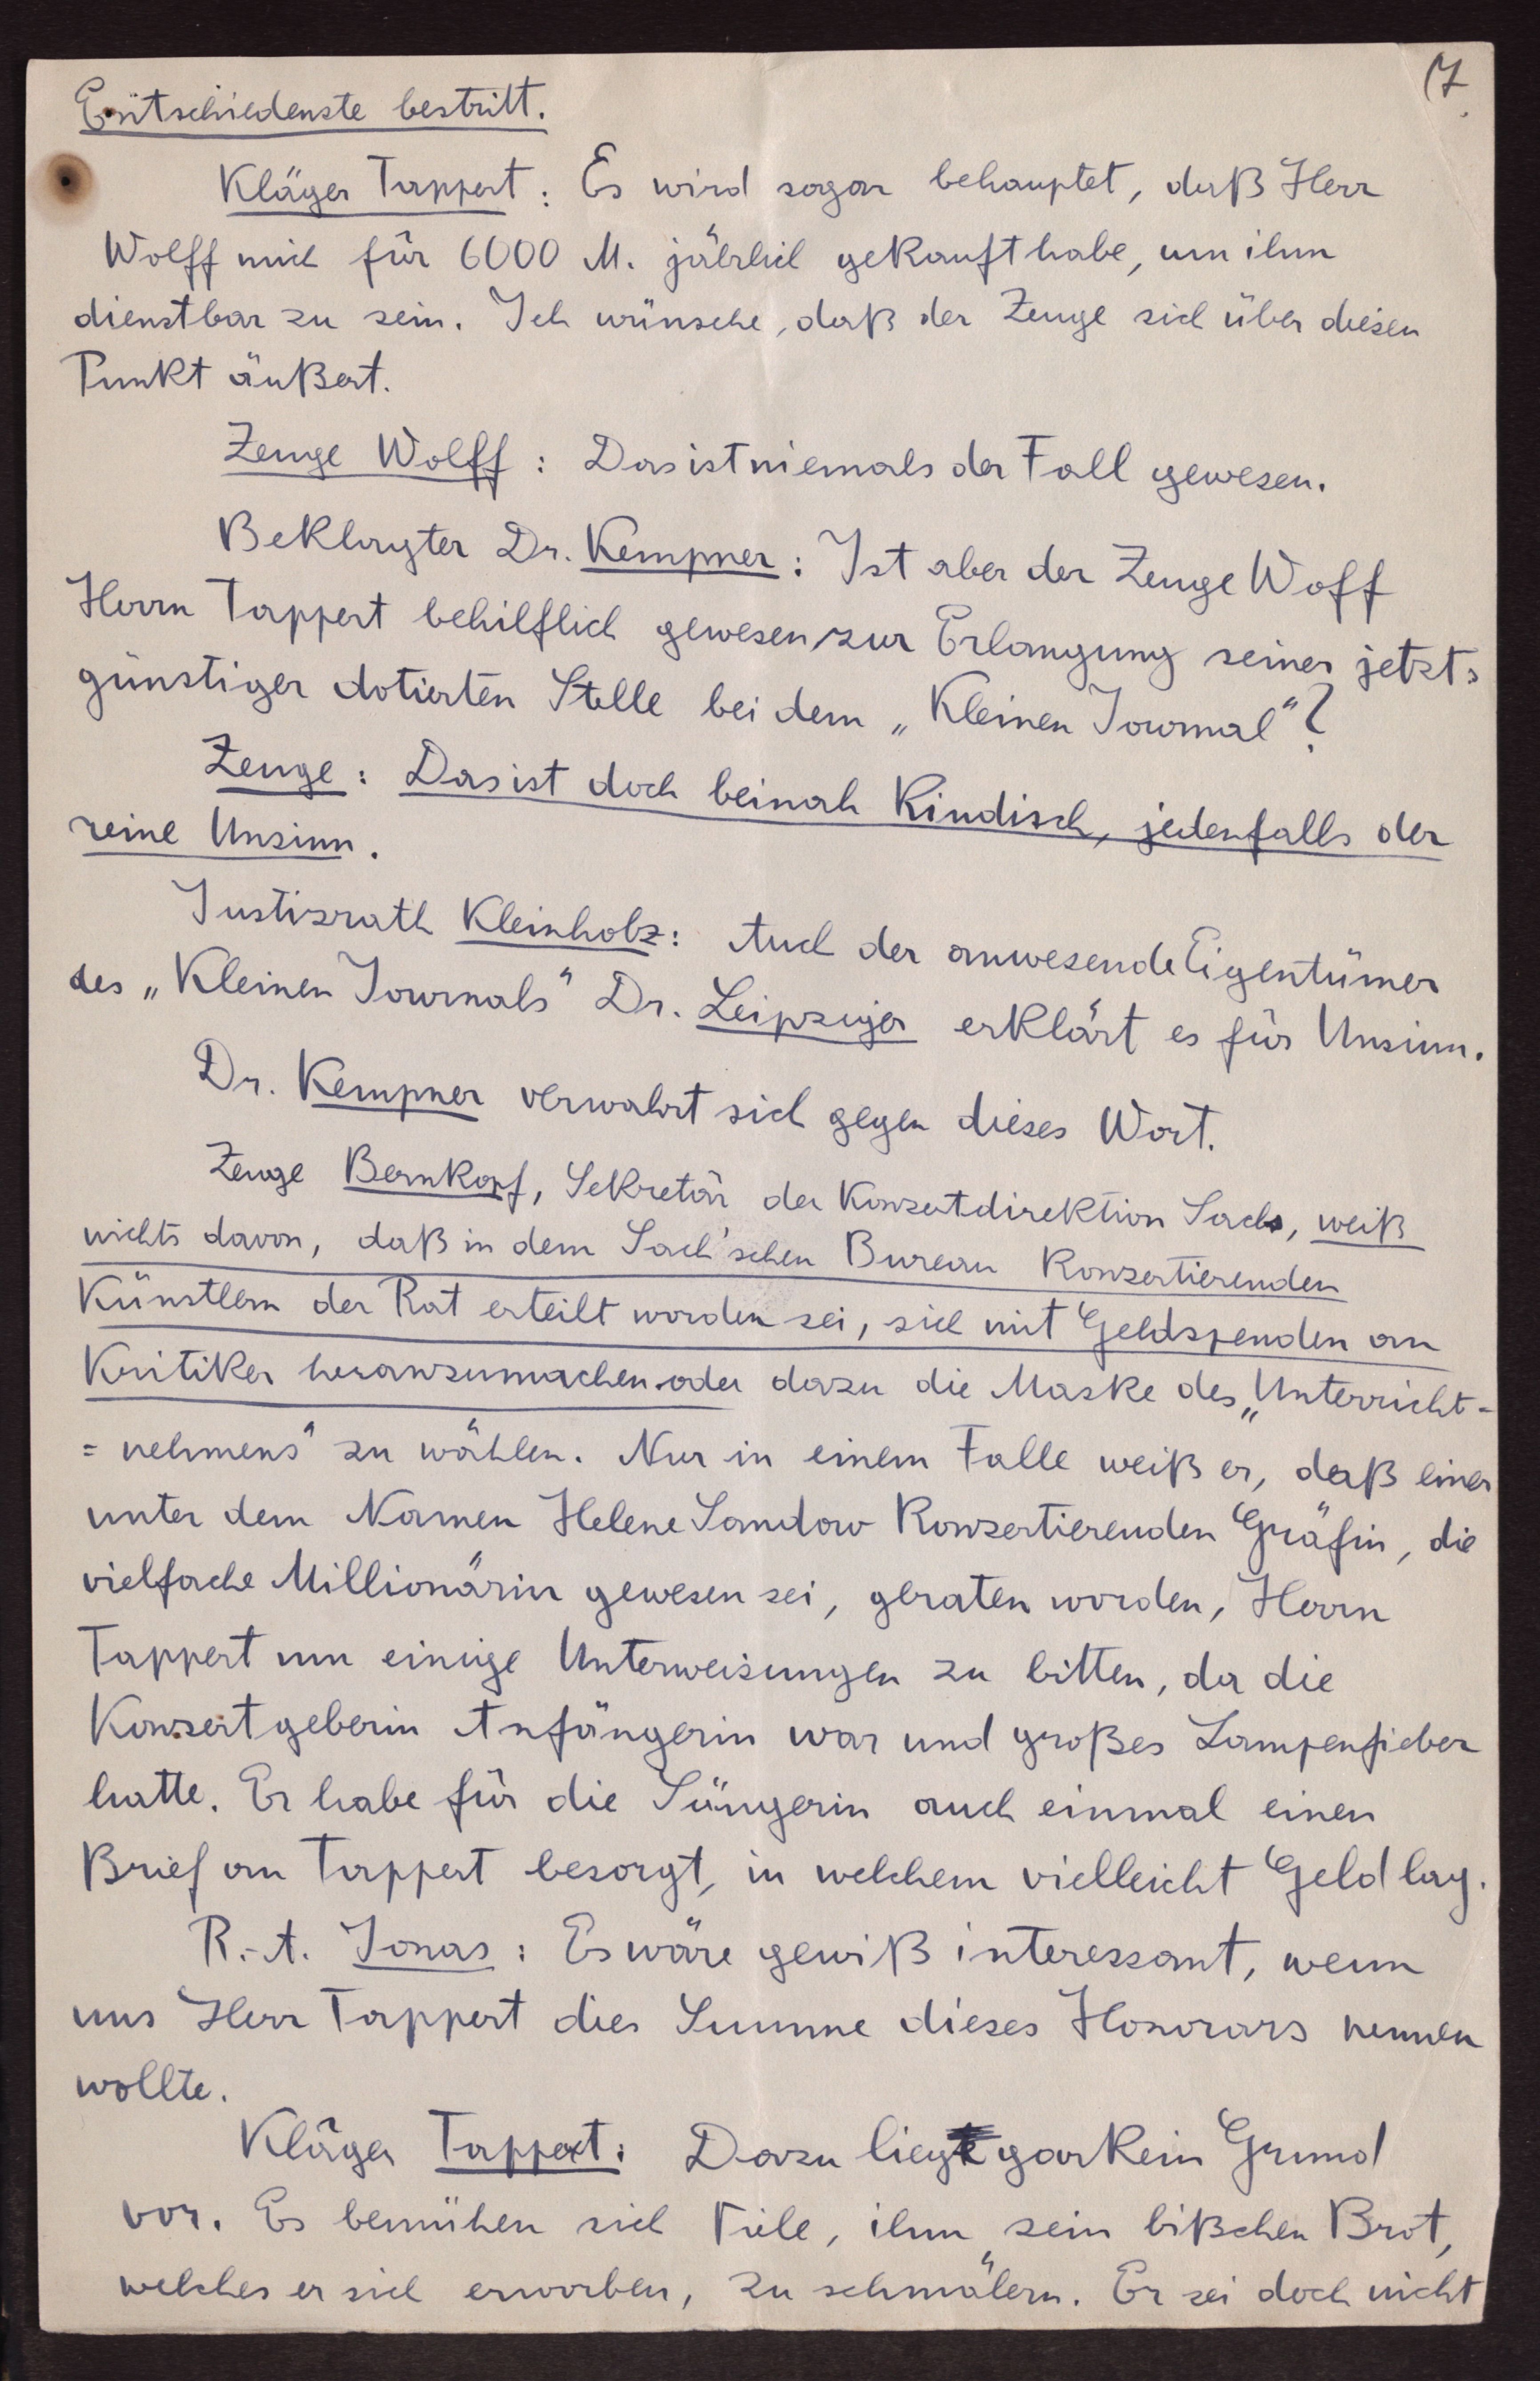 (7.
Entschiedenste bestritt.
Kläger Tappert: Es wird sogar behauptet, daß Herr
Wolff mich für 6000 M. jährlich gekauft habe, um ihm
dienstbar zu sein. Ich wünsche, daß der Zeuge sich über diesen
Punkt äußert.
Zeuge Wolff: Das ist niemals der Fall gewesen.
Beklagter Dr. Kempner: Ist aber der Zeuge Woff
Herrn Tappert behilflich gewesen zur Erlangung seiner jetzt
günstiger dotierten Stelle bei dem „Kleinen Journal"?
Zeuge: Das ist doch beinah kindisch, jedenfalls der
reine Unsinn.
Justizrath Kleinholz: Auch der anwesende Eigentümer
des „Kleinen Journals" Dr. Leipziger erklärt es für Unsinn.
Dr. Kempner verwahrt sich gegen dieses Wort.
Zeuge Bernkopf, Sekretär der Konzertdirektion Sachs, weiß
nichts davon, daß in dem Sach'schen Bureau konzertierenden
Künstlern der Rat erteilt worden sei, sich mit Geldspenden an
Kritiker heranzumachen oder dazu die Maske des „Unterricht=
=nehmens" zu wählen. Nur in einem Falle weiß er, daß einer
unter dem Namen Helene Sandow konzertierenden Gräfin, die
vielfache Millionärin gewesen sei, geraten worden, Herrn
Tappert um einige Unterweisungen zu bitten, da die
Konzertgeberin Anfängerin war und großes Lampenfieber
hatte. Er habe für die Sängerin auch einmal einen
Brief an Tappert besorgt, in welchem vielleicht Geld lag.
R.-A. Jonas: Es wäre gewiß interessant, wenn
uns Herr Tappert dies Summe dieses Honorars nennen
wollte.
Kläger Tappert: Dazu liegt gar kein Grund
vor. Es bemühen sich Viele, ihm sein bißchen Brot,
welches er sich erworben, zu schmälern. Er sei doch nicht